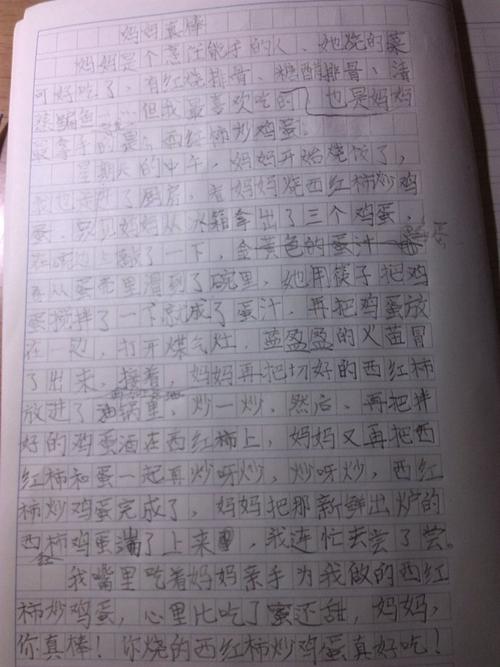 妈妈真棒
妈妈是个烹饪能手的人、她烧的菜
可好吃了,有红烧排骨、糖醋排骨、清
蒸鳊鱼……但我最喜欢吃的,也是妈妈
最拿手的是:西红柿炒鸡蛋。
星期天的中午,妈妈开始烧饭了,
我也走进了厨房,看妈妈烧西红柿炒鸡
蛋,只见妈妈从冰箱拿出了三个鸡蛋,
在碗边上敲了一下,金黄色的蛋汁
从蛋壳里滑到了碗里,她用筷子把鸡
蛋搅拌了一下就成了蛋汁,再把鸡蛋放
在 边,打开煤气灶,蓝盈盈的火苗冒
了出来,接着,妈妈再把切好的西红柿
放进了油锅里,炒一炒,然后、再把拌
好的鸡蛋洒在西红柿上,妈妈又再把西
红柿和蛋一起再炒呀炒,炒呀炒,西红
柿炒鸡蛋完成了,妈妈把那新鲜出炉的
西红柿鸡蛋端了上来,我连忙去尝了尝。
我嘴里吃着妈妈亲手为我做的西红
柿炒鸡蛋,心里比吃了蜜还甜,妈妈,
你真棒!你烧的西红柿炒鸡蛋真好吃!